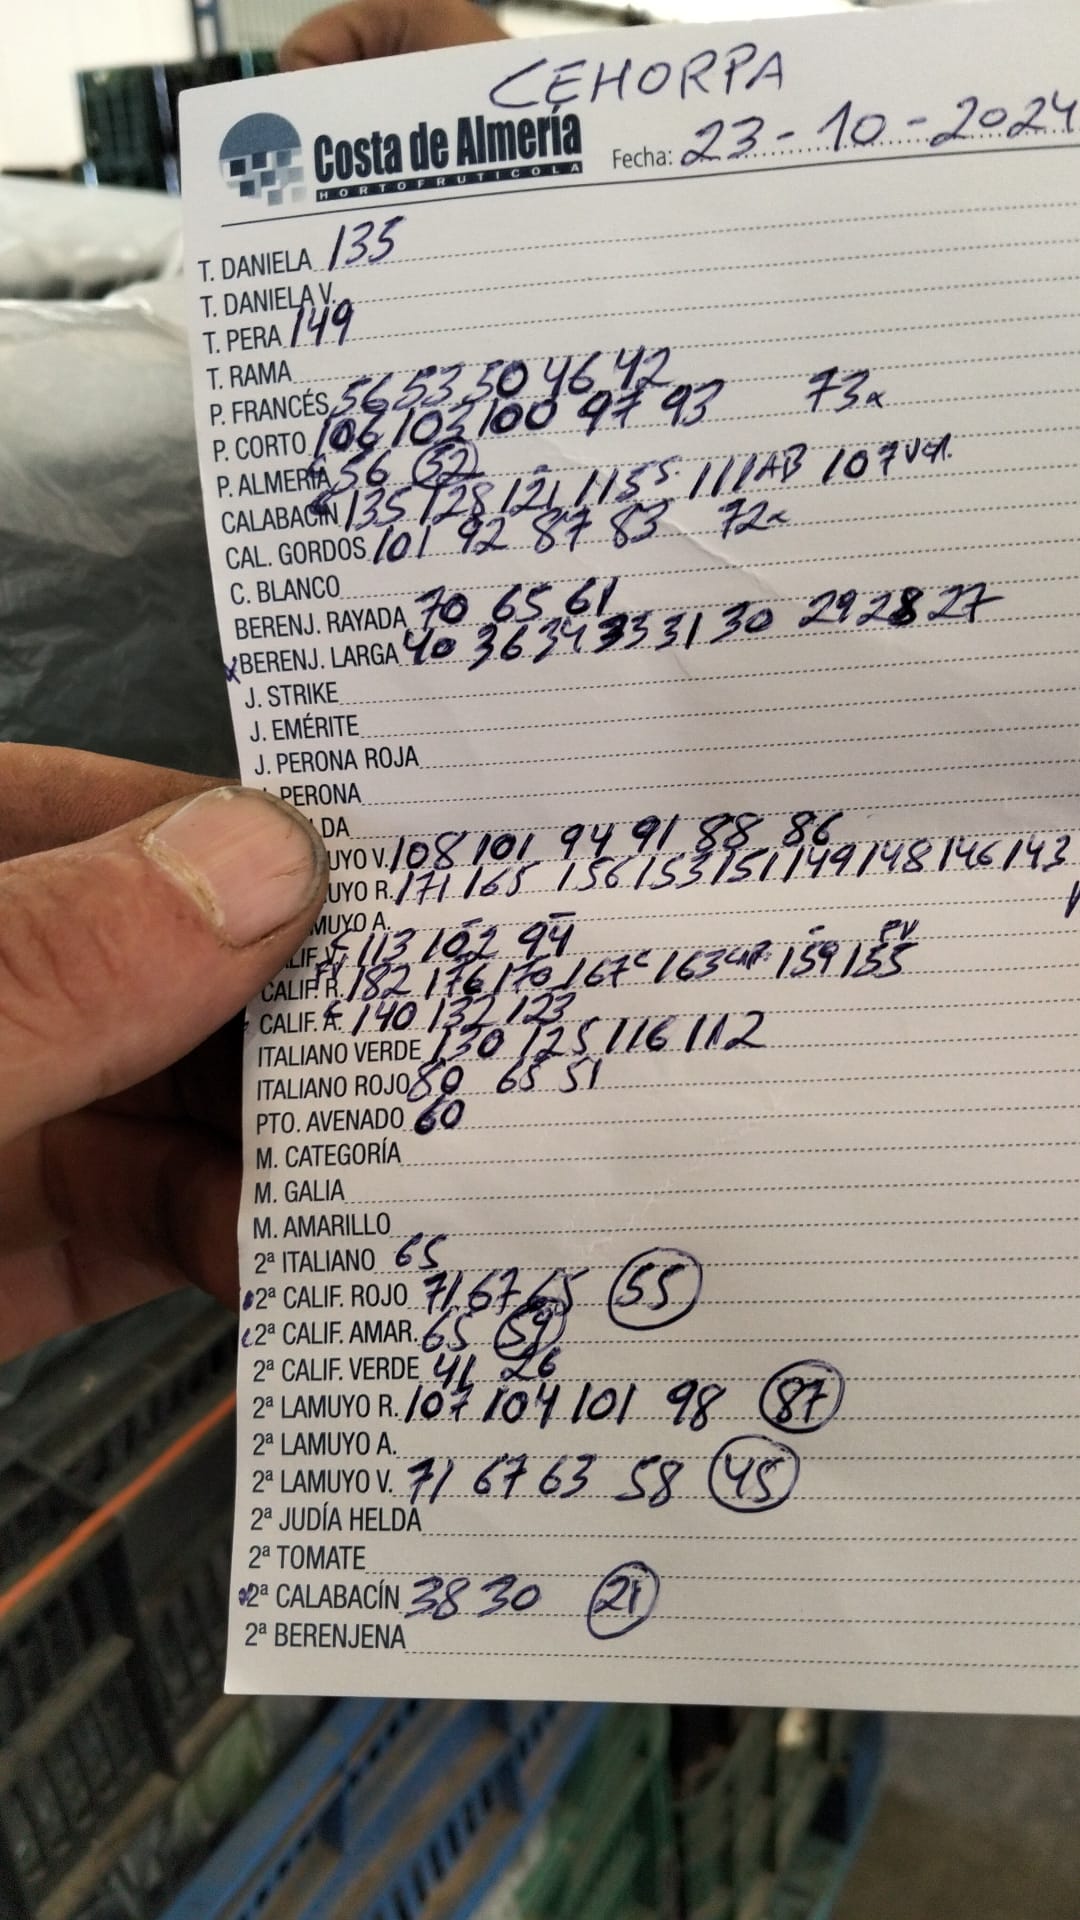 CEHORPA
Costa de Almería
HORTOFRUTICOLA
Fecha: 23-10-2024
T. DANIELA 135
T. DANIELA V.
T. PERA 149
T. RAMA
P. FRANCÉS 56 53 50 46 42
P. CORTO 106 103 100 97 93 73x
P. ALMERÍA 56 52
CALABACÍN 135 128 121 115 S 111 AB 107
CAL. GORDOS 101 92 87 83 72x
C. BLANCO
BERENJ. RAYADA 70 65 61
x BERENJ. LARGA 40 36 34 33 31 30 29 28 27
J. STRIKE
J. EMÉRITE
J. PERONA ROJA
PERONA
DA
UYO V. 108 101 94 91 88 86
UYO R. 171 165 156 153 151 149 148 146 143
MUYO A.
LIF. V. 113 102 94
CALIF. R. 182 176 170 167 C 163 159 155 PV
CALIF. A. 140 132 123
ITALIANO VERDE 130 125 116 112
ITALIANO ROJO 80 65 51
PTO. AVENADO 60
M. CATEGORÍA
M. GALIA
M. AMARILLO
2ª ITALIANO 65
2ª CALIF. ROJO 71 67 65 55
2ª CALIF. AMAR. 65 59
2ª CALIF. VERDE 41 26
2ª LAMUYO R. 107 104 101 98 87
2ª LAMUYO A.
2ª LAMUYO V. 71 67 63 58 45
2ª JUDÍA HELDA
2ª TOMATE
2ª CALABACÍN 38 30 21
2ª BERENJENA